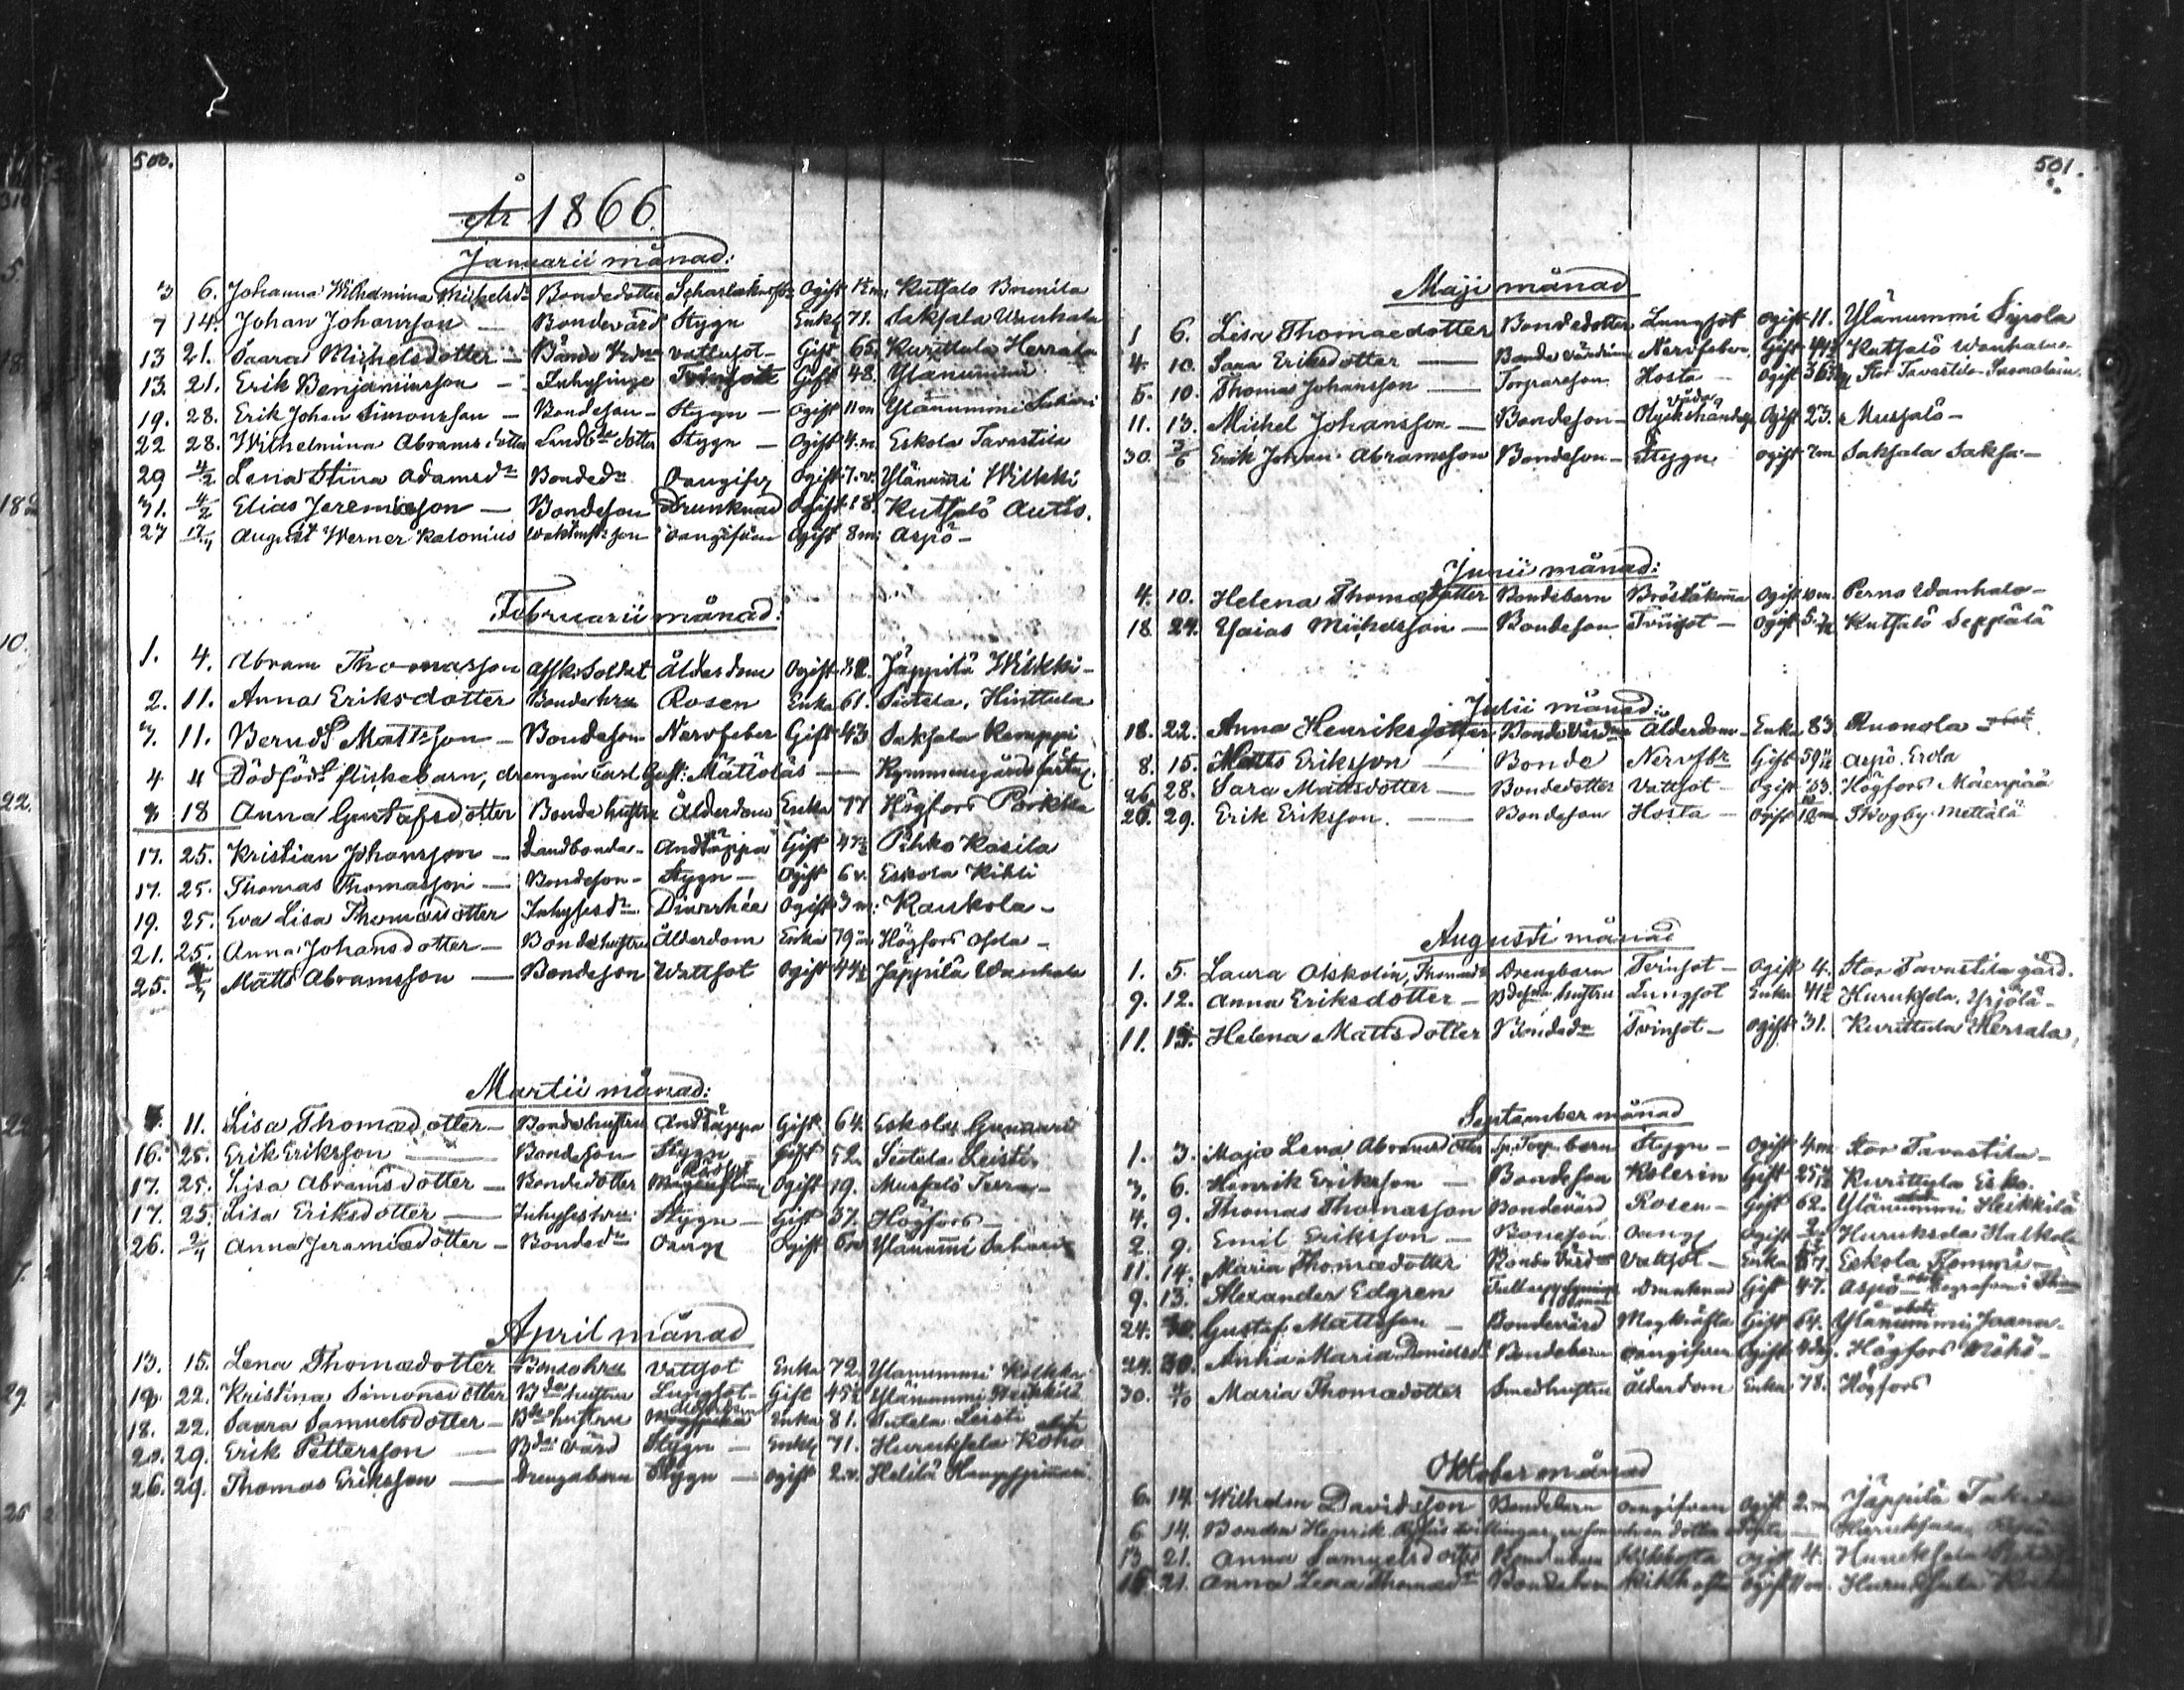 500.
År 1866
Januarii månad:
3 6. Johanna Wilhelmina Michelsdr Bondedotter Ogift Kutsalo
7 14. Johan Johansson — Bondevärd Stygn Enkl 71. Saksala Wanhala
13 21. Saara Michelsdotter — Bonde vattusot — Gift 65. Kurittula Herrala
13. 21. Erik Benjaminsson — Inhysinge Tvinsot Gift 48. Ylänummi
19. 28. Erik Johan Simonsson — Bondeson — Stygn — Ogift 11 m Ylänummi Sahari
22 28. Wilhelmina Abramsdotter dotter Stygn — Ogift 4. m Eskola Tavastila
29 4/2 Lena Stina Adamsdr Bondedr Oangifv Ogift 7. v. Ylänummi Wilkki
31. 4/2 Elias Jeremiæson — Bondeson Drunknad Ogift 18. Kutsalö Autio.
27 August Werner Kalonius son oangifven Ogift 8 m: Aspö —
Februarii månad:
1. 4. Abram Thomasson Afsk. Soldat Ålderdom Ogift 82. Jäppilä Wilkki —
2. 11. Anna Eriksdotter Bondehru Rosen Enka 61. Sutela, Hinttula
7. 11. Berndt Mattsson — Bondeson Nervfeber Gift 43 Saksala Kemppi
4 4 Dödfödt flickebarn, drengen Carl Gust: Mattolas — Kymmenegårds
18 Anna Gustafsdotter Bonde hustru Ålderdom Enka 77 Högfors Porkka
17. 25. Kristian Johansson — Landbonde — Andtäppa Gift 47 1/2 Pihko Kasila
17. 25. Thomas Thomasson — Bondeson — Stygn — Ogift 6 v. Eskola Kihli
19. 25. Eva Lisa Thomædotter Inhysesdr Diarrhée Ogift 3 m: Kaukola —
21. 25. Anna Johansdotter — Bondehustru Ålderdom Enka 79 Högfors —
25. Matts Abramsson — Bondeson Wattsot Ogift 44 1/2 Jäppilä Wanhala
Martii månad:
11. Lisa Thomædotter — Bondehustru Andtäppa Gift 64. Eskola Gunnari
16. 25. Erik Eriksson — Bondeson Stygn Gift 52. Sutela Leisti
17. 25. Lisa Abramsdotter — Bondedotter Ogift 19. Mussalö
17. 25. Lisa Eriksdotter — Inhyseshru Stygn — Gift 37. Högfors —
26. 2/4 Anna Jeremiædotter — Bondedr Oangf Ogift 6 v Ylänummi Sahari
April månad
13. 15. Lena Thomædotter Bondehru Vattsot Enka 72. Ylänummi Kolkka
19. 22. Kristina Simonsdotter Bde hustru Lungsot — Gift 45 1/2 Ylänummi Heikkilä
18. 22. Saara Samuelsdotter — Bde hustru Enka 81. Sutela Leisti
20. 29. Erik Pettersson — Bde värd Stygn — Enkl 71. Huruksela Koho
26. 29. Thomas Eriksson — Drengabarn Stygn — Ogift 2. v. Helilä
501.
Maji månad
1 6. Lisa Thomædotter Bondedotter Lungsot Ogift 11. Ylänummi Sipola
4. 10. Sara Eriksdotter — Bonde värdinna Nervfeber Gift 44 1/2 Kutsalö Wanhala
5. 10. Thomas Johansson — Torpareson Hosta — Ogift Stor Tavastila Suomalain
11. 13. Michel Johansson — Bondeson — Olyckshändelse Ogift 23. Mussalö —
30. 3/6 Erik Johan Abramsson Bondeson — Stygn Ogift 7m Saksala Saksa —
Junii månad:
4. 10. Helena Thomædotter Bondebarn Bröståkomma Ogift 10 m. Perno Wanhala —
18 24. Esaias Michelsson — Bondeson Tvinsot — Ogift 5. Kutsalö Seppälä
Julii månad:
18. 22. Anna Henriksdotter Bonde Värdna Ålderdom — Enka 83. Ruonola —
8. 15. Matts Eriksson — Bonde Nervfbr Gift 59 Aspö. Erola
26. 28. Sara Mattsdotter — Bondedotter Vattsot — Ogift 53. Högfors Mäenpää
26. 29. Erik Eriksson. — Bondeson Hosta — Ogift Skogby Mettälä
Augusti månad
1. 5. Laura Oskolin, Thomædr Drengbarn Tvinsot — Ogift 4. Stor Tavastila gård.
9. 12. Anna Eriksdotter — hustru Lungsot Enka 41 1/2 Huruksela, Yrjölä —
11. Helena Mattsdotter Bondedr Tvinsot — Ogift 31. Kurittula Herrala
September månad
1. 3. Maja Lena Abramsdotter barn Stygn — Ogift 4m. Stor Tavastila —
3. 6. Henrik Eriksson — Bondeson Kolerin Gift 25 Kurittula Esko.
4. 9. Thomas Thomasson Bondevärd Rosen — Gift 62. Ylänummi Heikkilä
2. 9. Emil Eriksson — Bondeson Oangf Ogift Huruksela
11. 14. Maria Thomædotter Bonde Värdna Vattsot — Enka 57. Eskola Kommi —
9. 13. Alexander Edgren drunknad Gift 47. Aspö —
24. 30. Gustaf Mattsson — Bondevärd Magkräfta Gift 64. Ylänummi Jaana.
24. 30. Anna Maria Danielsdr Bondebarn oangifven Ogift 4 dg. Högfors
30. Maria Thomædotter Smedhustru Ålderdom Enka 78. Högfors
Oktober månad
6. 14. Wilhelm Davidsson Bondebarn oangifven Ogift 2. m Jäppilä
6 14. Bonden Henrik tvillingar, en son och en dotter — Huruksela
13 21. Anna Samuelsdotter Bondebarn Kikhosta Ogift 4. Huruksela
21. Anna Lena Thomædr Bondebarn Kikhosta Ogift 11 m. Huruksela